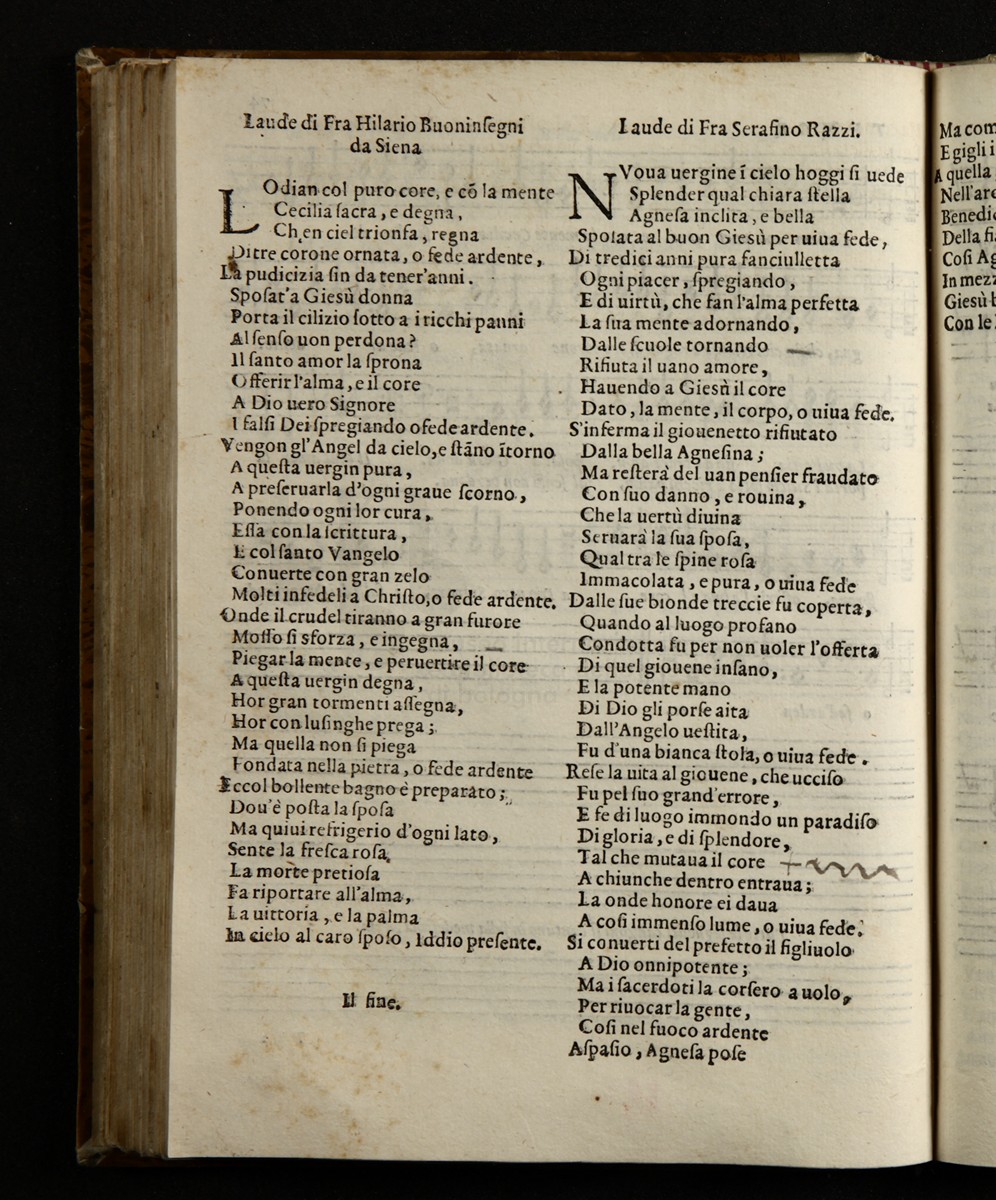 Laude di Fra Hilario Buoninſegni
da Siena
LOdian col puro core, e cō la mente
Cecilia ſacra, e degna,
Ch'en ciel trionfa, regna
Di tre corone ornata, o fede ardente,
La pudicizia ſin da tener'anni.
Spoſat'a Giesù donna
Porta il cilizio ſotto a i ricchi panni
Al ſenſo uon perdona?
Il ſanto amor la ſprona
Offerir l'alma, e il core
A Dio uero Signore
I falſi Dei ſpregiando o fede ardente.
Vengon gl'Angel da cielo, e ſtāno ītorno
A queſta uergin pura,
A preſeruarla d'ogni graue ſcorno,
Ponendo ogni lor cura,
Eſſa con la ſcrittura,
E col ſanto Vangelo
Conuerte con gran zelo
Molti infedeli a Chriſto, o fede ardente.
Onde il crudel tiranno a gran furore
Moſſo ſi sforza, e ingegna,
Piegar la mente, e peruertire il core
A queſta uergin degna,
Hor gran tormenti aſſegna,
Hor con luſinghe prega;
Ma quella non ſi piega
Fondata nella pietra, o fede ardente
Eccol bollente bagno è preparato;
Dou'è poſta la ſpoſa
Ma quiui refrigerio d'ogni lato,
Sente la freſca roſa,
La morte pretioſa
Fa riportare all'alma,
La uittoria, e la palma
In cielo al caro ſpoſo, Iddio preſente.
Il fine.
Laude di Fra Serafino Razzi.
NVoua uergine ī cielo hoggi ſi uede
Splender qual chiara ſtella
Agneſa inclita, e bella
Spoſata al buon Giesù per uiua fede,
Di tredici anni pura fanciulletta
Ogni piacer, ſpregiando,
E di uirtù, che fan l'alma perfetta
La ſua mente adornando,
Dalle ſcuole tornando
Rifiuta il uano amore,
Hauendo a Giesù il core
Dato, la mente, il corpo, o uiua fede.
S'inferma il giouenetto rifiutato
Dalla bella Agneſina;
Ma reſterà del uan penſier fraudato
Con ſuo danno, e rouina,
Che la uertù diuina
Seruarà la ſua ſpoſa,
Qual tra le ſpine roſa
Immacolata, e pura, o uiua fede
Dalle ſue bionde treccie fu coperta,
Quando al luogo profano
Condotta fu per non uoler l'offerta
Di quel giouene inſano,
E la potente mano
Di Dio gli porſe aita
Dall'Angelo ueſtita,
Fu d'una bianca ſtola, o uiua fede.
Reſe la uita al giouene, che ucciſo
Fu pel ſuo grand'errore,
E fe di luogo immondo un paradiſo
Di gloria, e di ſplendore,
Tal che mutaua il core
A chiunche dentro entraua;
La onde honore ei daua
A coſi immenſo lume, o uiua fede.
Si conuerti del prefetto il figliuolo
A Dio onnipotente;
Ma i ſacerdoti la corſero a uolo,
Per riuocar la gente,
Coſi nel fuoco ardente
Aſpaſio, Agneſa poſe
Ma com
E gigli i
A quella
Nell'are
Benedic
Della fi
Coſi Ag
In mezz
Giesù b
Con le